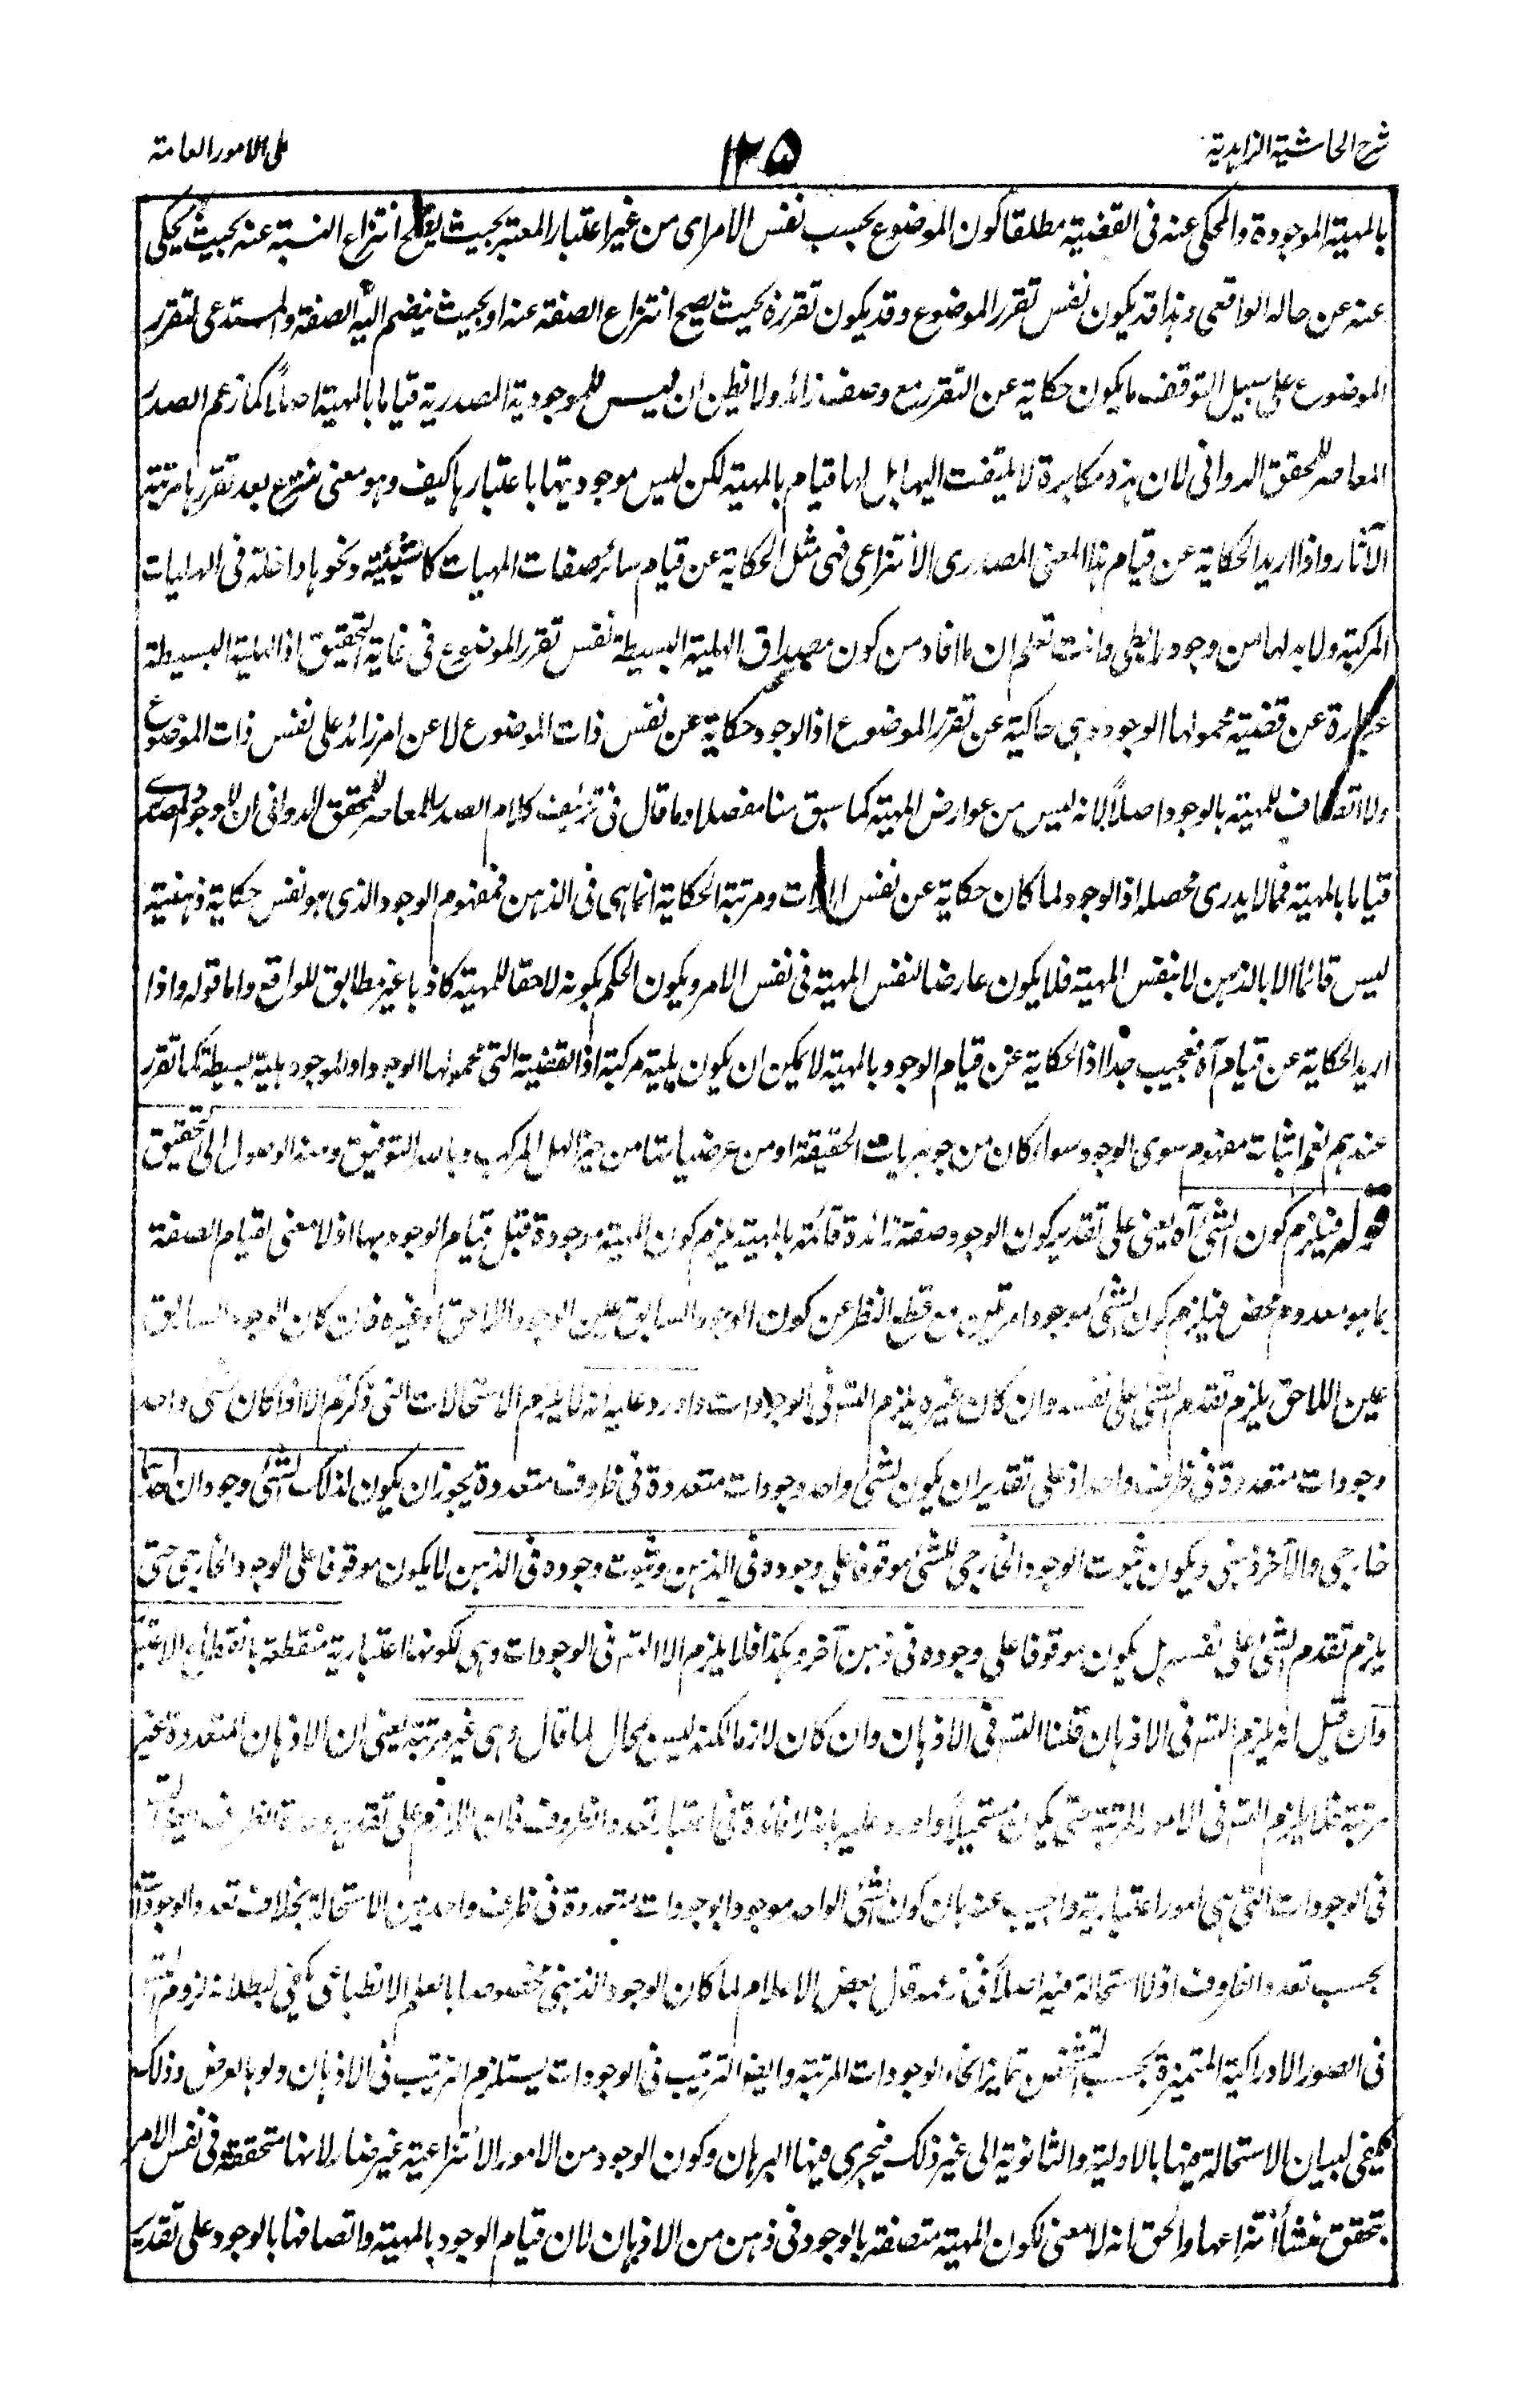 شرح الحاشية الزاهدية
١٢٥
على الامور العامة
بالمهية الموجودة والمحكى عنه فى القضية مطلقا كون الموضوع بحسب نفس الامر اى من غير اعتبار المعتبر بحيث يصح انتزاع النسبة عنه بحيث يحكى
عنه عن حاله الواقعى وهذا قد يكون نفس تقرر الموضوع وقد يكون تقرره بحيث يصح انتزاع الصفة عنه او بحيث ينضم اليه الصفة والمستدعى لتقرر
الموضوع على سبيل التوقف ما يكون حكاية عن التقرر مع وصف زائد ولا تظن ان ليس للموجودية المصدرية قياما بالمهية اصلاً كما زعم الصدر
المعاصر للمحقق الدوانى لان هذه مكابرة لا يلتفت اليها بل لها قيام بالمهية لكن ليس موجوديتها باعتبارها كيف وهو معنى منتزع بعد تقررها مرتبة
الآثار واذا اريد الحكاية عن قيام هذا المعنى المصدرى الانتزاعى فهى مثل الحكاية عن قيام سائر صفات المهيات كالشيئية ونحوها داخلة فى الهليات
المركبة ولا بد لها من وجود رابطى وانت تعلم ان ما افاد من كون مصداق الهلية البسيطة نفس تقرر الموضوع فى غاية التحقيق اذ الهلية البسيطة
عبارة عن قضية محمولها الوجود وهى حاكية عن تقرر الموضوع اذ الوجود حكاية عن نفس ذات الموضوع لا عن امر زائد على نفس ذات الموضوع
ولا اتصاف للمهية بالوجود اصلاً لانه ليس من عوارض المهية كما سبق منا مفصلا وما قال فى تزئيف كلام الصدر المعاصر للمحقق الدوانى ان للوجود المصدرى
قياما بالمهية فمما لا يدرى محصله اذ الوجود لما كان حكاية عن نفس الذات ومرتبة الحكاية انما هى فى الذهن فمفهوم الوجود الذى هو نفس حكاية ذهنية
ليس قائما الا بالذهن لا بنفس المهية فلا يكون عارضا لنفس المهية فى نفس الامر ويكون الحكم بكونه لاحقا للمهية كاذبا غير مطابق للواقع واما قوله واذا
اريد الحكاية عن قيام آه فعجيب جدا اذ الحكاية عن قيام الوجود بالمهية لا يمكن ان يكون هلية مركبة اذ القضية التى محمولها الوجود او الموجود هلية بسيطة كما تقرر
عندهم نعم اثبات مفهوم سوى الوجود سواء كان من جوهريات الحقيقة او من عرضياتها من حيز الهل المركب وبالله التوفيق ومنه الوصول الى التحقيق
قوله فيلزم كون الشئ آه يعنى على تقدير كون الوجود صفة زائدة قائمة بالمهية يلزم كون المهية موجودة قبل قيام الوجود بها اذ لا معنى لقيام الصفة
بما هو معدوم محض فيلزم كون الشئ موجودا مرتين مع قطع النظر عن كون الوجود السابق عين الوجود اللاحق او غيره فان كان الوجود السابق
عين اللاحق يلزم تقدم الشئ على نفسه وان كان غيره يلزم التسـ فى الوجودات واورد عليه انه لا يلزم الاستحالات التى ذكرتم الا اذا كان لشئ واحد
وجودات متعددة فى ظرف واحد اذ على تقدير ان يكون لشئ واحد وجودات متعددة فى ظروف متعددة يجوز ان يكون لذلك الشئ وجودان احدهما
خارجى والآخر ذهنى ويكون ثبوت الوجود الخارجى للشئ موقوفا على وجوده فى الذهن وثبوت وجوده فى الذهن لا يكون موقوفا على الوجود الخارجى حتى
يلزم تقدم الشئ على نفسه بل يكون موقوفا على وجوده فى ذهن آخر وهكذا فلا يلزم الا التسـ فى الوجودات وهى لكونها اعتبارية منقطعة بانقطاع الاعتبار
وان قيل انه يلزم التسـ فى الاذهان قلنا التسـ فى الاذهان وان كان لازما لكنه ليس بمحال لما قال وهى غير مرتبة يعنى ان الاذهان المتعددة غير
مرتبة فلا يلزم التسـ فى الامور المرتبة حتى يكون مستحيلاً واورد عليه بانه لا فائدة فى اعتبار تعدد الظروف فان اللازم على تقدير وحدة الظرف ايضا التسـ
فى الوجودات التى هى امور اعتبارية واجيب عنه بان كون الشئ الواحد موجودا بوجودات متعددة فى ظرف واحد بين الاستحالة بخلاف تعدد الوجودات
بحسب تعدد الظروف اذ لا استحالة فيه اصلاً فى زعمه قال بعض الاعلام لما كان الوجود الذهنى مخصوصا بالعلم الانطباعى يكفى لبطلانه لزوم التسـ
فى الصور الادراكية المتميزة بحسب التشخص تمايز انحاء الوجودات المرتبة وايضا الترتيب فى الوجودات يستلزم الترتيب فى الاذهان ولو بالعرض وذلك
يكفى لبيان الاستحالة فيها بالاولية والثانوية الى غير ذلك فيجرى فيها البرهان وكون الوجود من الامور الانتزاعية غير ضار لانها متحققة فى نفس الامر
بتحقق منشأ انتزاعها والحق انه لا معنى لكون المهية متصفة بالوجود فى ذهن من الاذهان لان قيام الوجود بالمهية واتصافها بالوجود على تقدير